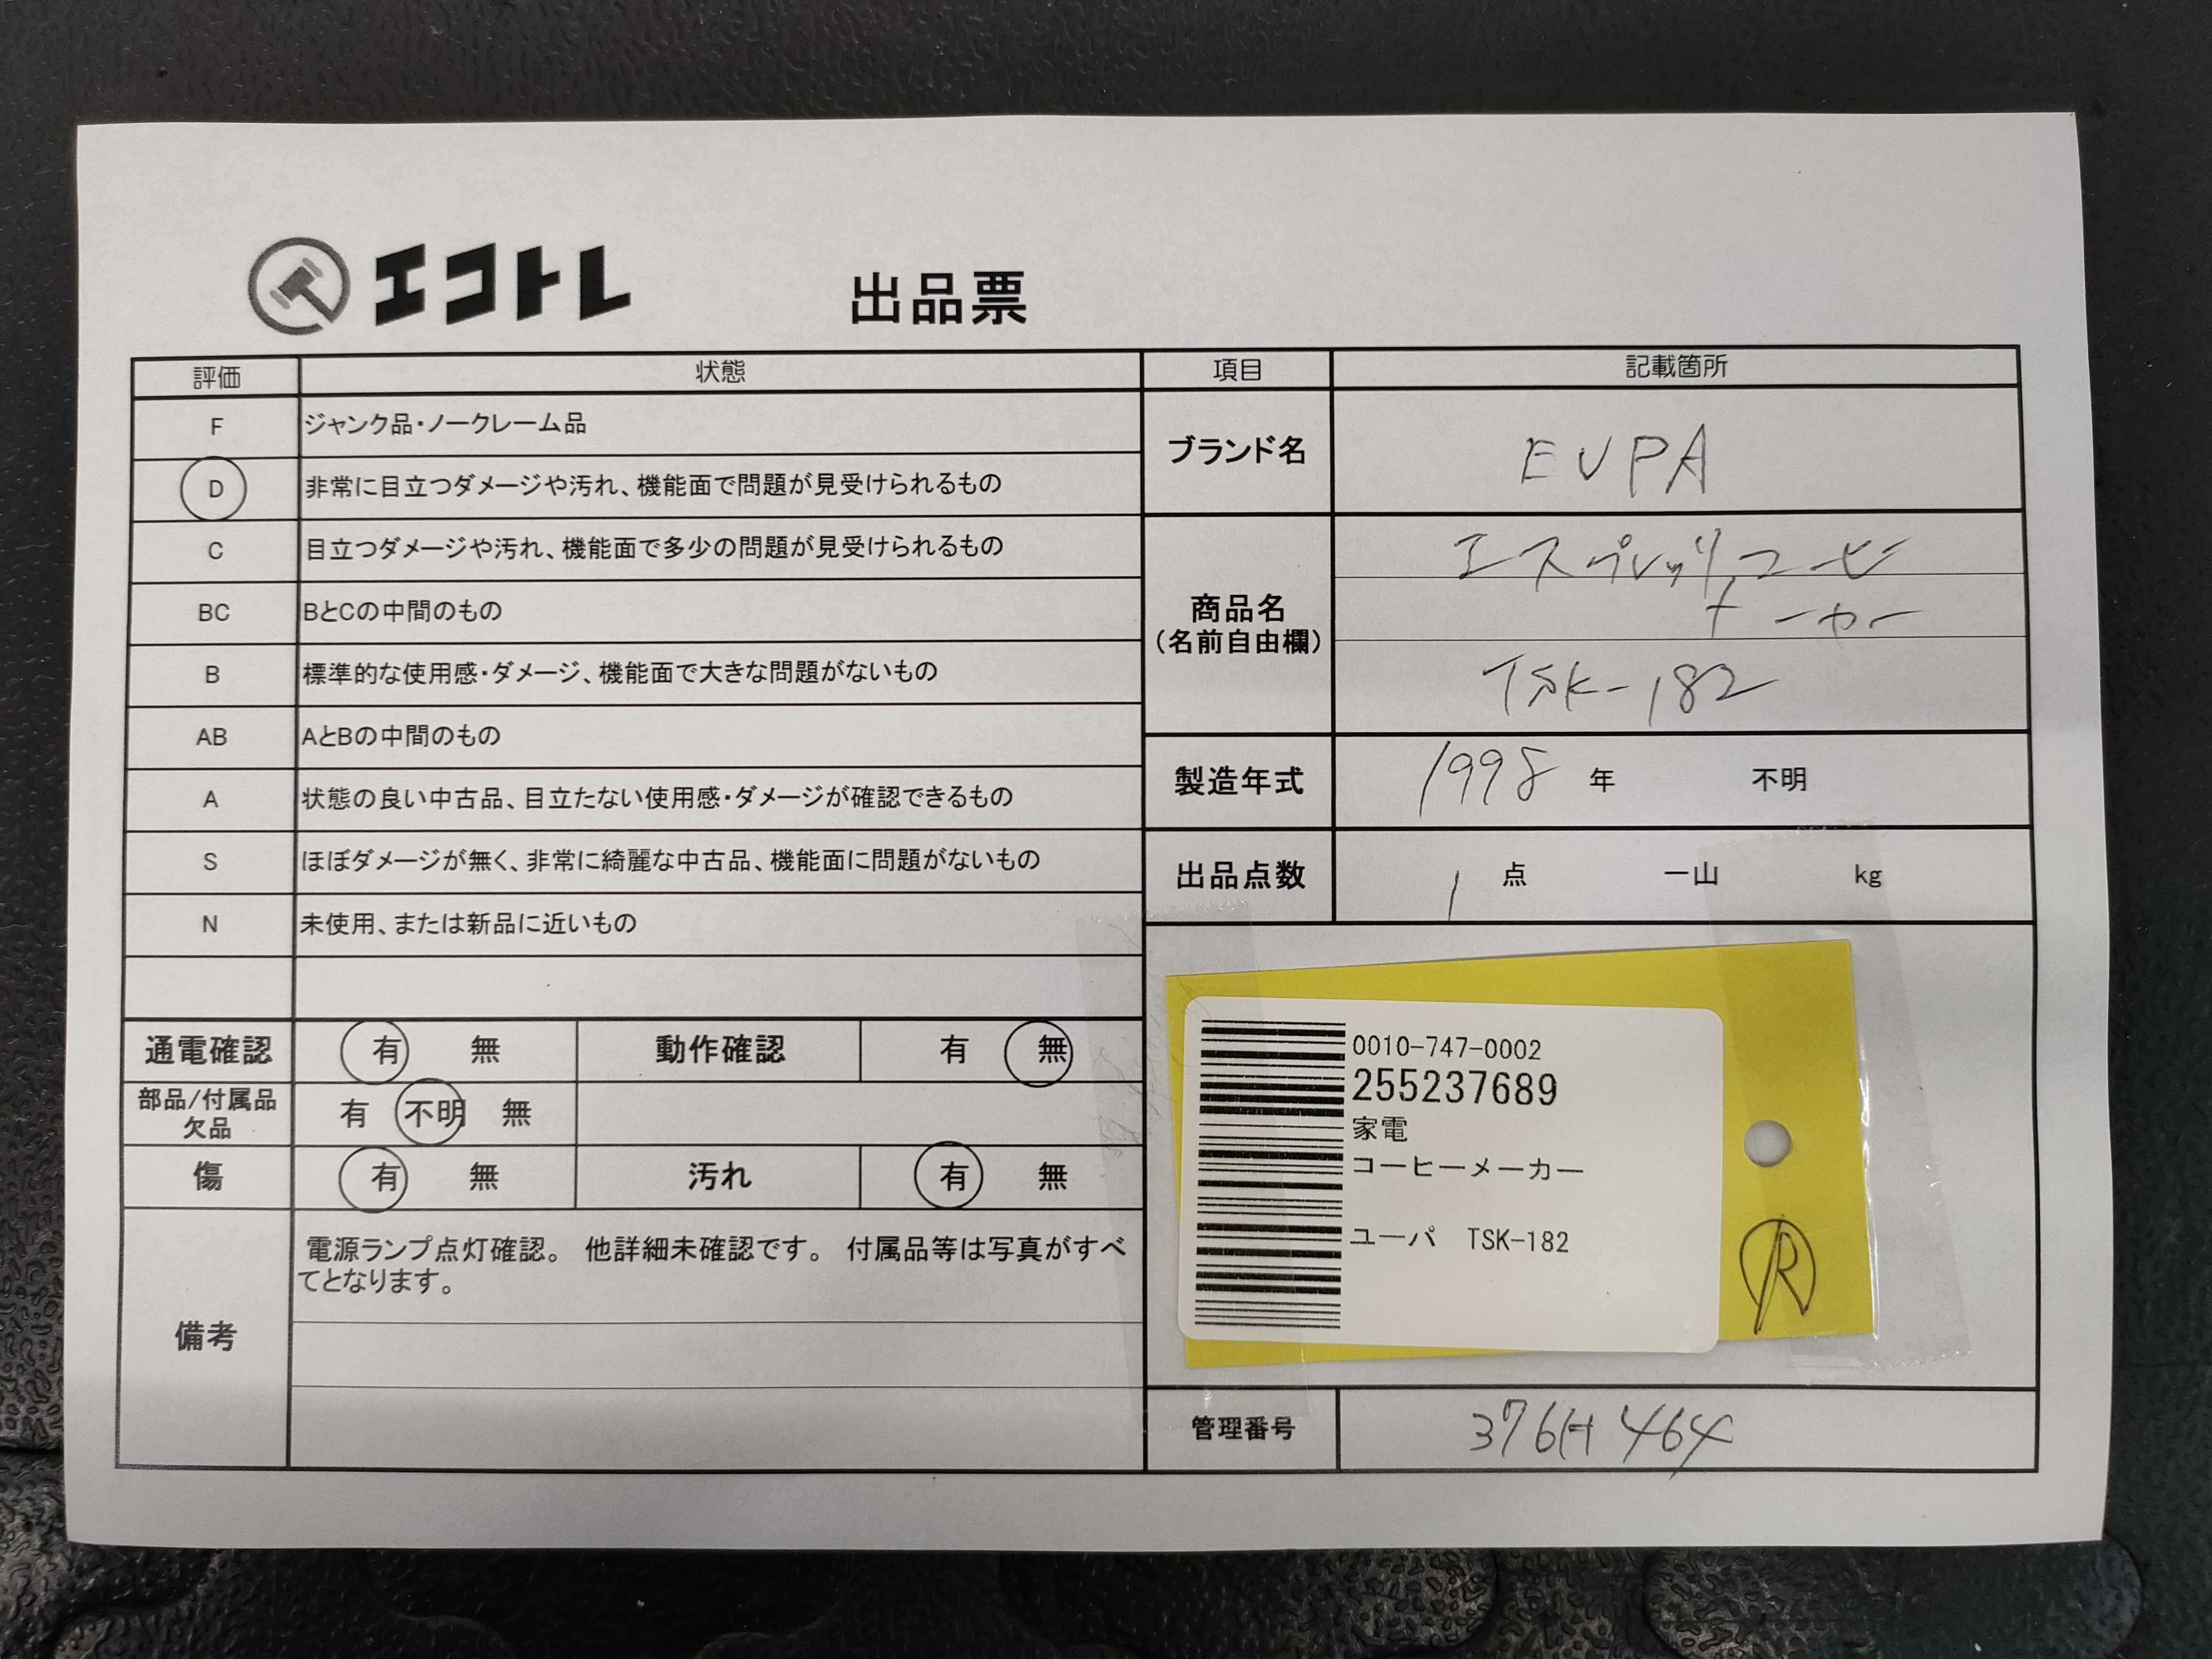 エコトレ
出品票
評価 状態
F ジャンク品・ノークレーム品
D 非常に目立つダメージや汚れ、機能面で問題が見受けられるもの
C 目立つダメージや汚れ、機能面で多少の問題が見受けられるもの
BC BとCの中間のもの
B 標準的な使用感・ダメージ、機能面で大きな問題がないもの
AB AとBの中間のもの
A 状態の良い中古品、目立たない使用感・ダメージが確認できるもの
S ほぼダメージが無く、非常に綺麗な中古品、機能面に問題がないもの
N 未使用、または新品に近いもの
通電確認 有 無 動作確認 有 無
部品/付属品
欠品
有 不明 無
傷 有 無 汚れ 有 無
備考
電源ランプ点灯確認。 他詳細未確認です。 付属品等は写真がすべ
てとなります。
項目 記載箇所
ブランド名 EUPA
商品名
(名前自由欄)
エスプレッソコーヒー
メーカー
TSK-182
製造年式 1998 年 不明
出品点数 1 点 一山 kg
0010-747-0002
255237689
家電
コーヒーメーカー
ユーパ TSK-182
R
管理番号 376H464